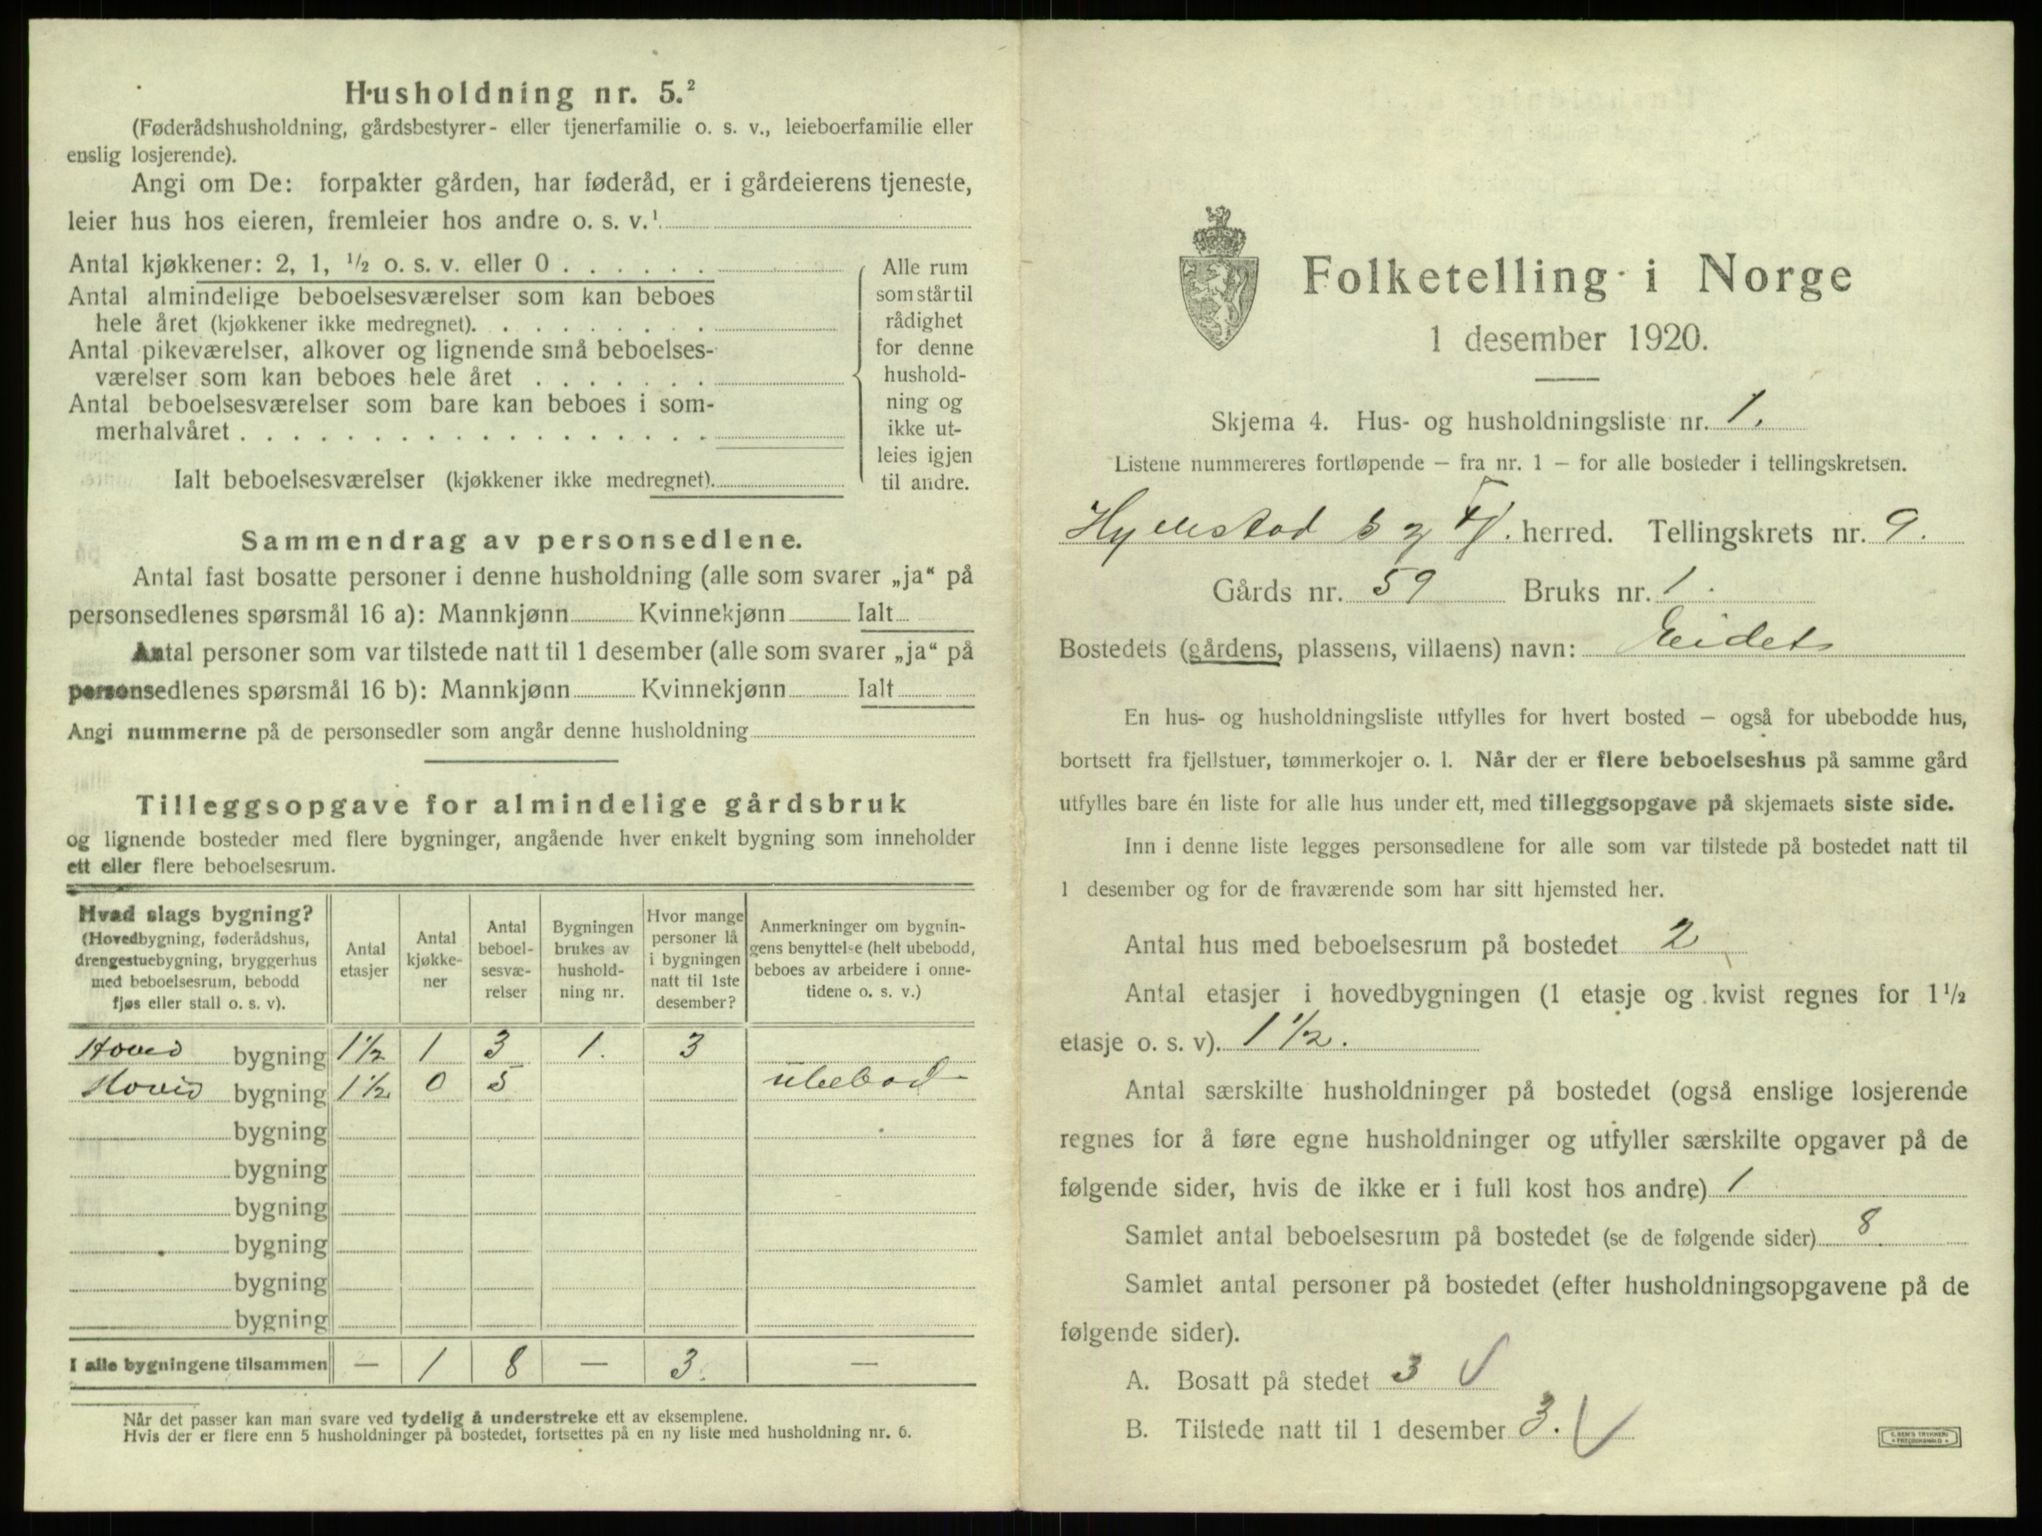 Husholdning nr. 5.²
(Føderådshusholdning, gårdsbestyrer- eller tjenerfamilie o. s. v., leieboerfamilie eller
enslig losjerende).
Angi om De: forpakter gården, har føderåd, er i gårdeierens tjeneste,
leier hus hos eieren, fremleier hos andre o. s. v.¹
Antal kjøkkener: 2, 1, ½ o. s. v. eller 0 . . . . . .
Antal almindelige beboelsesværelser som kan beboes
hele året (kjøkkener ikke medregnet). . . . . . . . .
Antal pikeværelser, alkover og lignende små beboelses-
værelser som kan beboes hele året . . . . . . .
Antal beboelsesværelser som bare kan beboes i som-
merhalvåret . . . . . . . . . . . . . . . . . .
Ialt beboelsesværelser (kjøkkener ikke medregnet).
Alle rum
som står til
rådighet
for denne
hushold-
ning og
ikke ut-
leies igjen
til andre.
Sammendrag av personsedlene.
Antal fast bosatte personer i denne husholdning (alle som svarer „ja“ på
personsedlenes spørsmål 16 a): Mannkjønn Kvinnekjønn Ialt
Antal personer som var tilstede natt til 1 desember (alle som svarer „ja“ på
personsedlenes spørsmål 16 b): Mannkjønn Kvinnekjønn Ialt
Angi nummerne på de personsedler som angår denne husholdning
Tilleggsopgave for almindelige gårdsbruk
og lignende bosteder med flere bygninger, angående hver enkelt bygning som inneholder
ett eller flere beboelsesrum.
Hvad slags bygning?
(Hovedbygning, føderådshus,
drengestuebygning, bryggerhus
med beboelsesrum, bebodd
fjøs eller stall o. s. v).
Antal
etasjer
Antal
kjøkke-
ner
Antal
beboel-
sesvæ-
relser
Bygningen
brukes av
hushold-
ning nr.
Hvor mange
personer lå
i bygningen
natt til 1ste
desember?
Anmerkninger om bygnin-
gens benyttelse (helt ubebodd,
beboes av arbeidere i onne-
tidene o. s. v.)
Hoved bygning 1½ 1 3 1. 3
Hoved bygning 1½ 0 5 ubebod
bygning
bygning
bygning
bygning
bygning
bygning
I alle bygningene tilsammen — 1 8 — 3. —
Når det passer kan man svare ved tydelig å understreke ett av eksemplene.
Hvis der er flere enn 5 husholdninger på bostedet, fortsettes på en ny liste med husholdning nr. 6.
Folketelling i Norge
1 desember 1920.
Skjema 4. Hus- og husholdningsliste nr. 1.
Listene nummereres fortløpende — fra nr. 1 — for alle bosteder i tellingskretsen.
Hyllestad herred. Tellingskrets nr. 9.
Gårds nr. 59 Bruks nr. 1.
Bostedets (gårdens, plassens, villaens) navn: Eidet
En hus- og husholdningsliste utfylles for hvert bosted — også for ubebodde hus,
bortsett fra fjellstuer, tømmerkojer o. l. Når der er flere beboelseshus på samme gård
utfylles bare én liste for alle hus under ett, med tilleggsopgave på skjemaets siste side.
Inn i denne liste legges personsedlene for alle som var tilstede på bostedet natt til
1 desember og for de fraværende som har sitt hjemsted her.
Antal hus med beboelsesrum på bostedet 2
Antal etasjer i hovedbygningen (1 etasje og kvist regnes for 1½
etasje o. s. v). 1½.
Antal særskilte husholdninger på bostedet (også enslige losjerende
regnes for å føre egne husholdninger og utfyller særskilte opgaver på de
følgende sider, hvis de ikke er i full kost hos andre) 1
Samlet antal beboelsesrum på bostedet (se de følgende sider) 8.
Samlet antal personer på bostedet (efter husholdningsopgavene på de
følgende sider).
A. Bosatt på stedet 3
B. Tilstede natt til 1 desember 3.